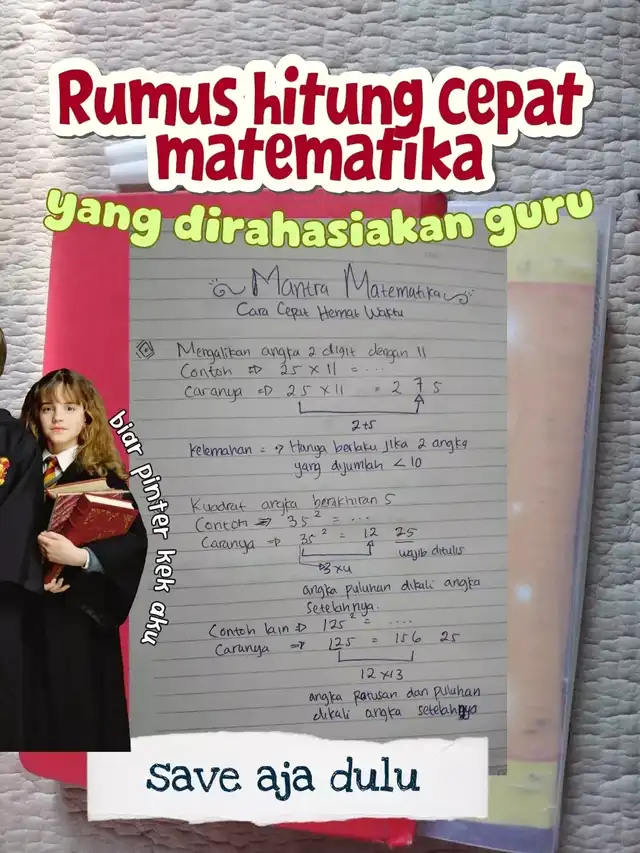 Rumus hitung cepat
matematika
yang dirahasiakan guru
Mantra Matematika
Cara Cepat Hemat Waktu
Mengalikan angka 2 digit dengan 11
Contoh ⇒ 25 × 11 = ...
Caranya ⇒ 25 × 11 = 2 7 5
2+5
Kelemahan = → Hanya berlaku jika 2 angka
yang dijumlah < 10
Kuadrat angka berakhiran 5
Contoh → 35² = ...
Caranya → 35² = 12 25
wajib ditulis
→3 × 4
angka puluhan dikali angka
setelahnya.
Contoh lain ⇒ 125² = ....
Caranya → 125 = 156 25
12 × 13
angka ratusan dan puluhan
dikali angka setelahnya
biar pinter kek aku
save aja dulu